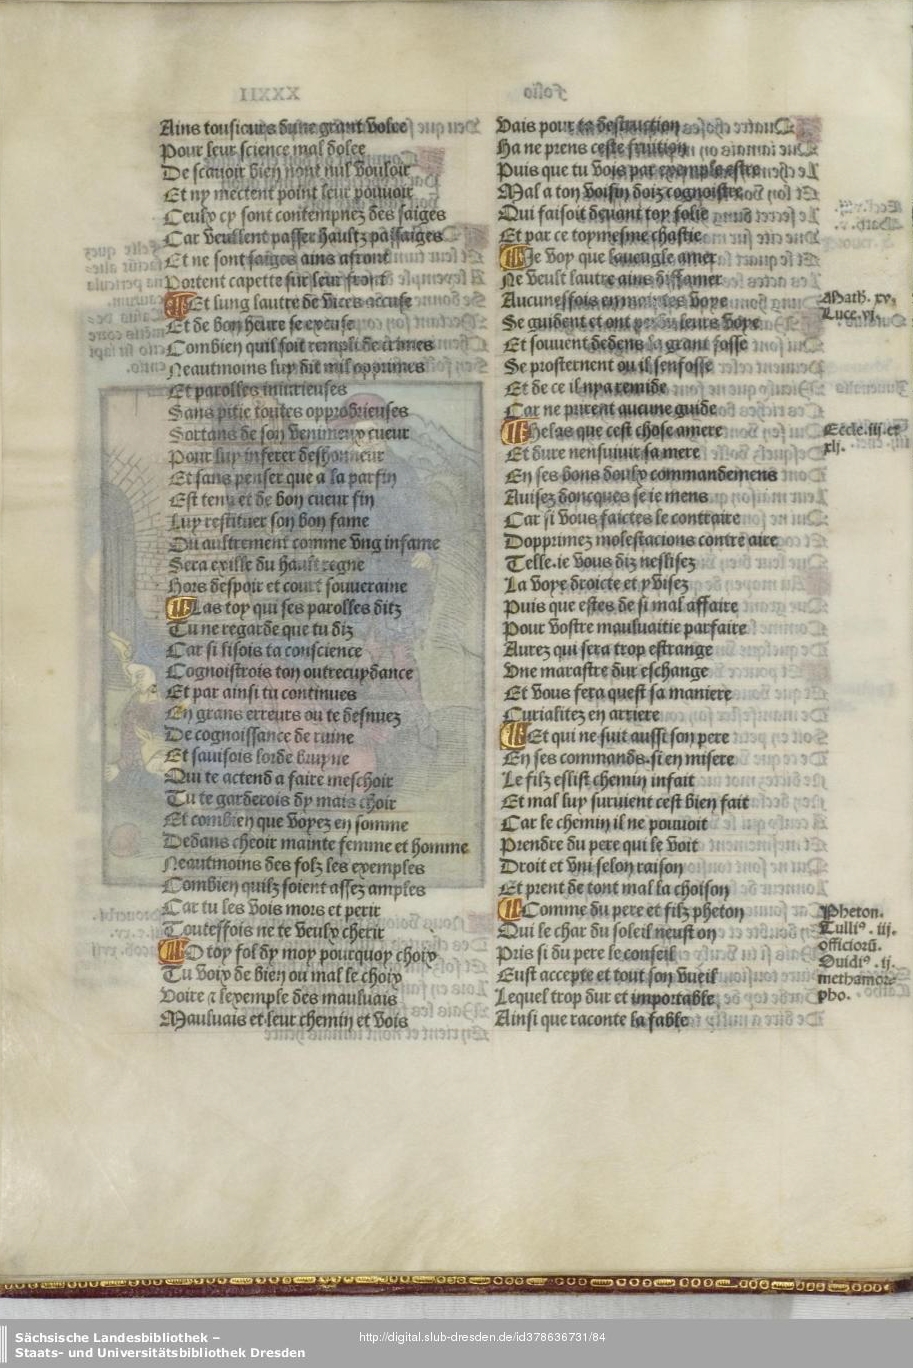 Ains tousiours dune grant volee
Pour leur science mal dolee
De scauoir bien nont nul vouloir
Et ny mectent point leur pouuoir
Ceulx cy sont contempnez des saiges
Car veullent passer haultz passaiges
Et ne sont saiges ains afront
Portent capette sur leur front
Et lung lautre de vices accuse
Et de bon heure se excuse
Combien quil soit rempli de crimes
Neautmoins luy dit mil opprimes
Et parolles iniurieuses
Sans pitie toutes opprobrieuses
Sortans de son venimeux cueur
Pour luy inferer deshonneur
Et sans penser que a la parfin
Est tenu et de bon cueur fin
Luy restituer son bon fame
Ou aultrement comme vng infame
Sera exille du hault regne
Hors despoir et court souueraine
Las toy qui ses parolles ditz
Tu ne regarde que tu diz
Car si lisois ta conscience
Cognoistrois ton oultrecuydance
Et par ainsi tu continues
En grans erreurs ou te desnuez
De cognoissance de ruine
Et sauisois lorde bruyne
Qui te actend a faire meschoir
Tu te garderois dy mais choir
Et combien que voyez en somme
Dedans cheoir mainte femme et homme
Neautmoins des folz les exemples
Combien quilz soient assez amples
Car tu les vois mors et perir
Toutesfois ne te veulx cherir
O toy fol dy moy pourquoy choix
Tu voix de bien ou mal le choix
Voire ⁊ lexemple des mauluais
Mauluais et leur chemin et vois
Vais pour ta destruction
Ha ne prens ceste fruition
Puis que tu vois par exemple estre
Mal a ton voisin doiz cognoistre
Qui faisoit deuant toy folie
Et par ce toymesme chastie
Je voy que laueugle amer
Ne veult lautre ains diffamer
Aucuneffois les voye
Se guident et ont leurs voye
Et souuent dedens la grant fosse
Se prosternent ou il senfosse
Et de ce il nya remide
Car ne prirent aucune guide
Helas que cest chose amere
Et dure nensuiuir sa mere
En ses bons doulx commandemens
Auisez doncques se ie mens
Car si vous faictes le contraire
Dopprimez molestacions contre aire
Telle.ie vous diz neslisez
La voye droicte et y visez
Puis que estes de si mal affaire
Pour vostre mauluaitie parfaire
Aurez qui sera trop estrange
Vne marastre dur eschange
Et vous fera quest sa maniere
Curialitez en arriere
Et qui ne suit aussi son pere
En ses commands.si en misere
Le filz eslist chemin infait
Et mal luy suruient cest bien fait
Car le chemin il ne pouuoit
Prendre du pere qui le voit
Droit et vni selon raison
Et prent de tout mal la choison
Comme du pere et filz pheton
Qui le char du soleil neust on
Pris si du pere le conseil
Eust accepte et tout son vueil
Lequel trop dur et importable
Ainsi que raconte la fable
Math. xv.
Luce.vi.
Eccle.iii.et
xlj.
Pheton.
Tulliꝰ. iij.
officiorū.
Ouidiꝰ. ij.
methamor
pho.
Sächsische Landesbibliothek –
Staats- und Universitätsbibliothek Dresden
http://digital.slub-dresden.de/id378636731/84